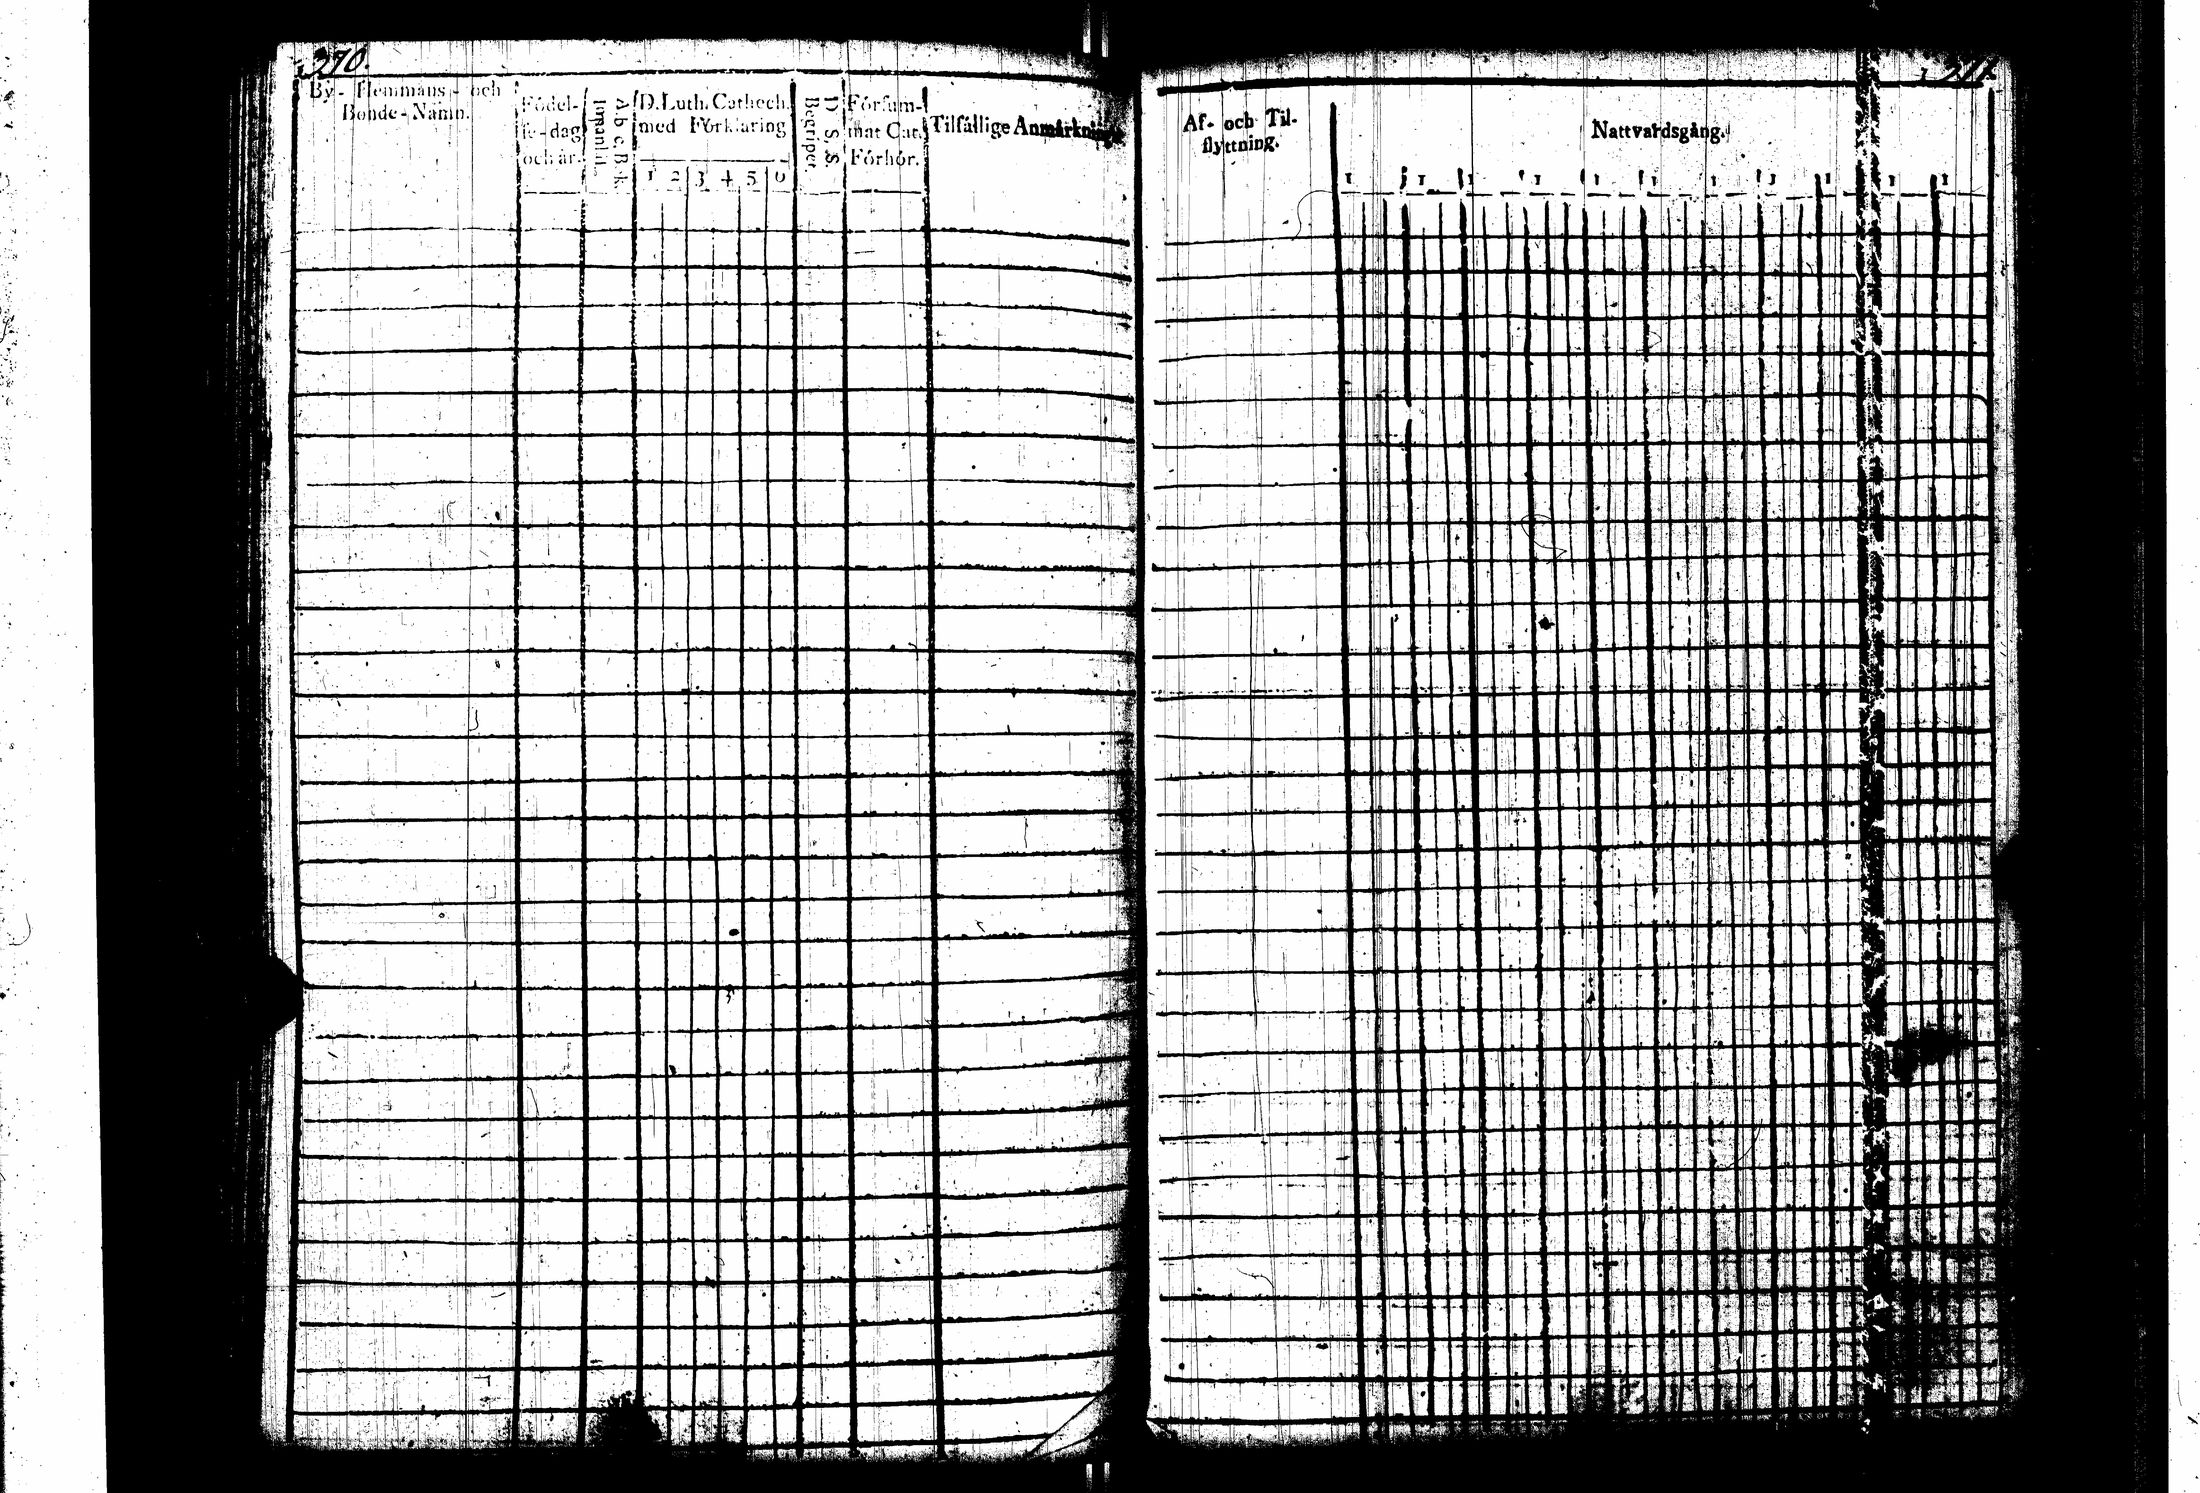 270.
By- Hemmans- och
Bonde-Namn.
Födel-
se-dag
och år.
A b c, B-k.
D. Luth. Cathech.
med Förklaring
1 2 3 4 5 6
D. S. S.
Begriper.
Försum-
mat Cat.
Förhör.
Tilfällige Anmärkningar
271.
Af- och Til-
flyttning.
Nattvardsgång.
1 1 1 1 1 1 1 1 1 1 1